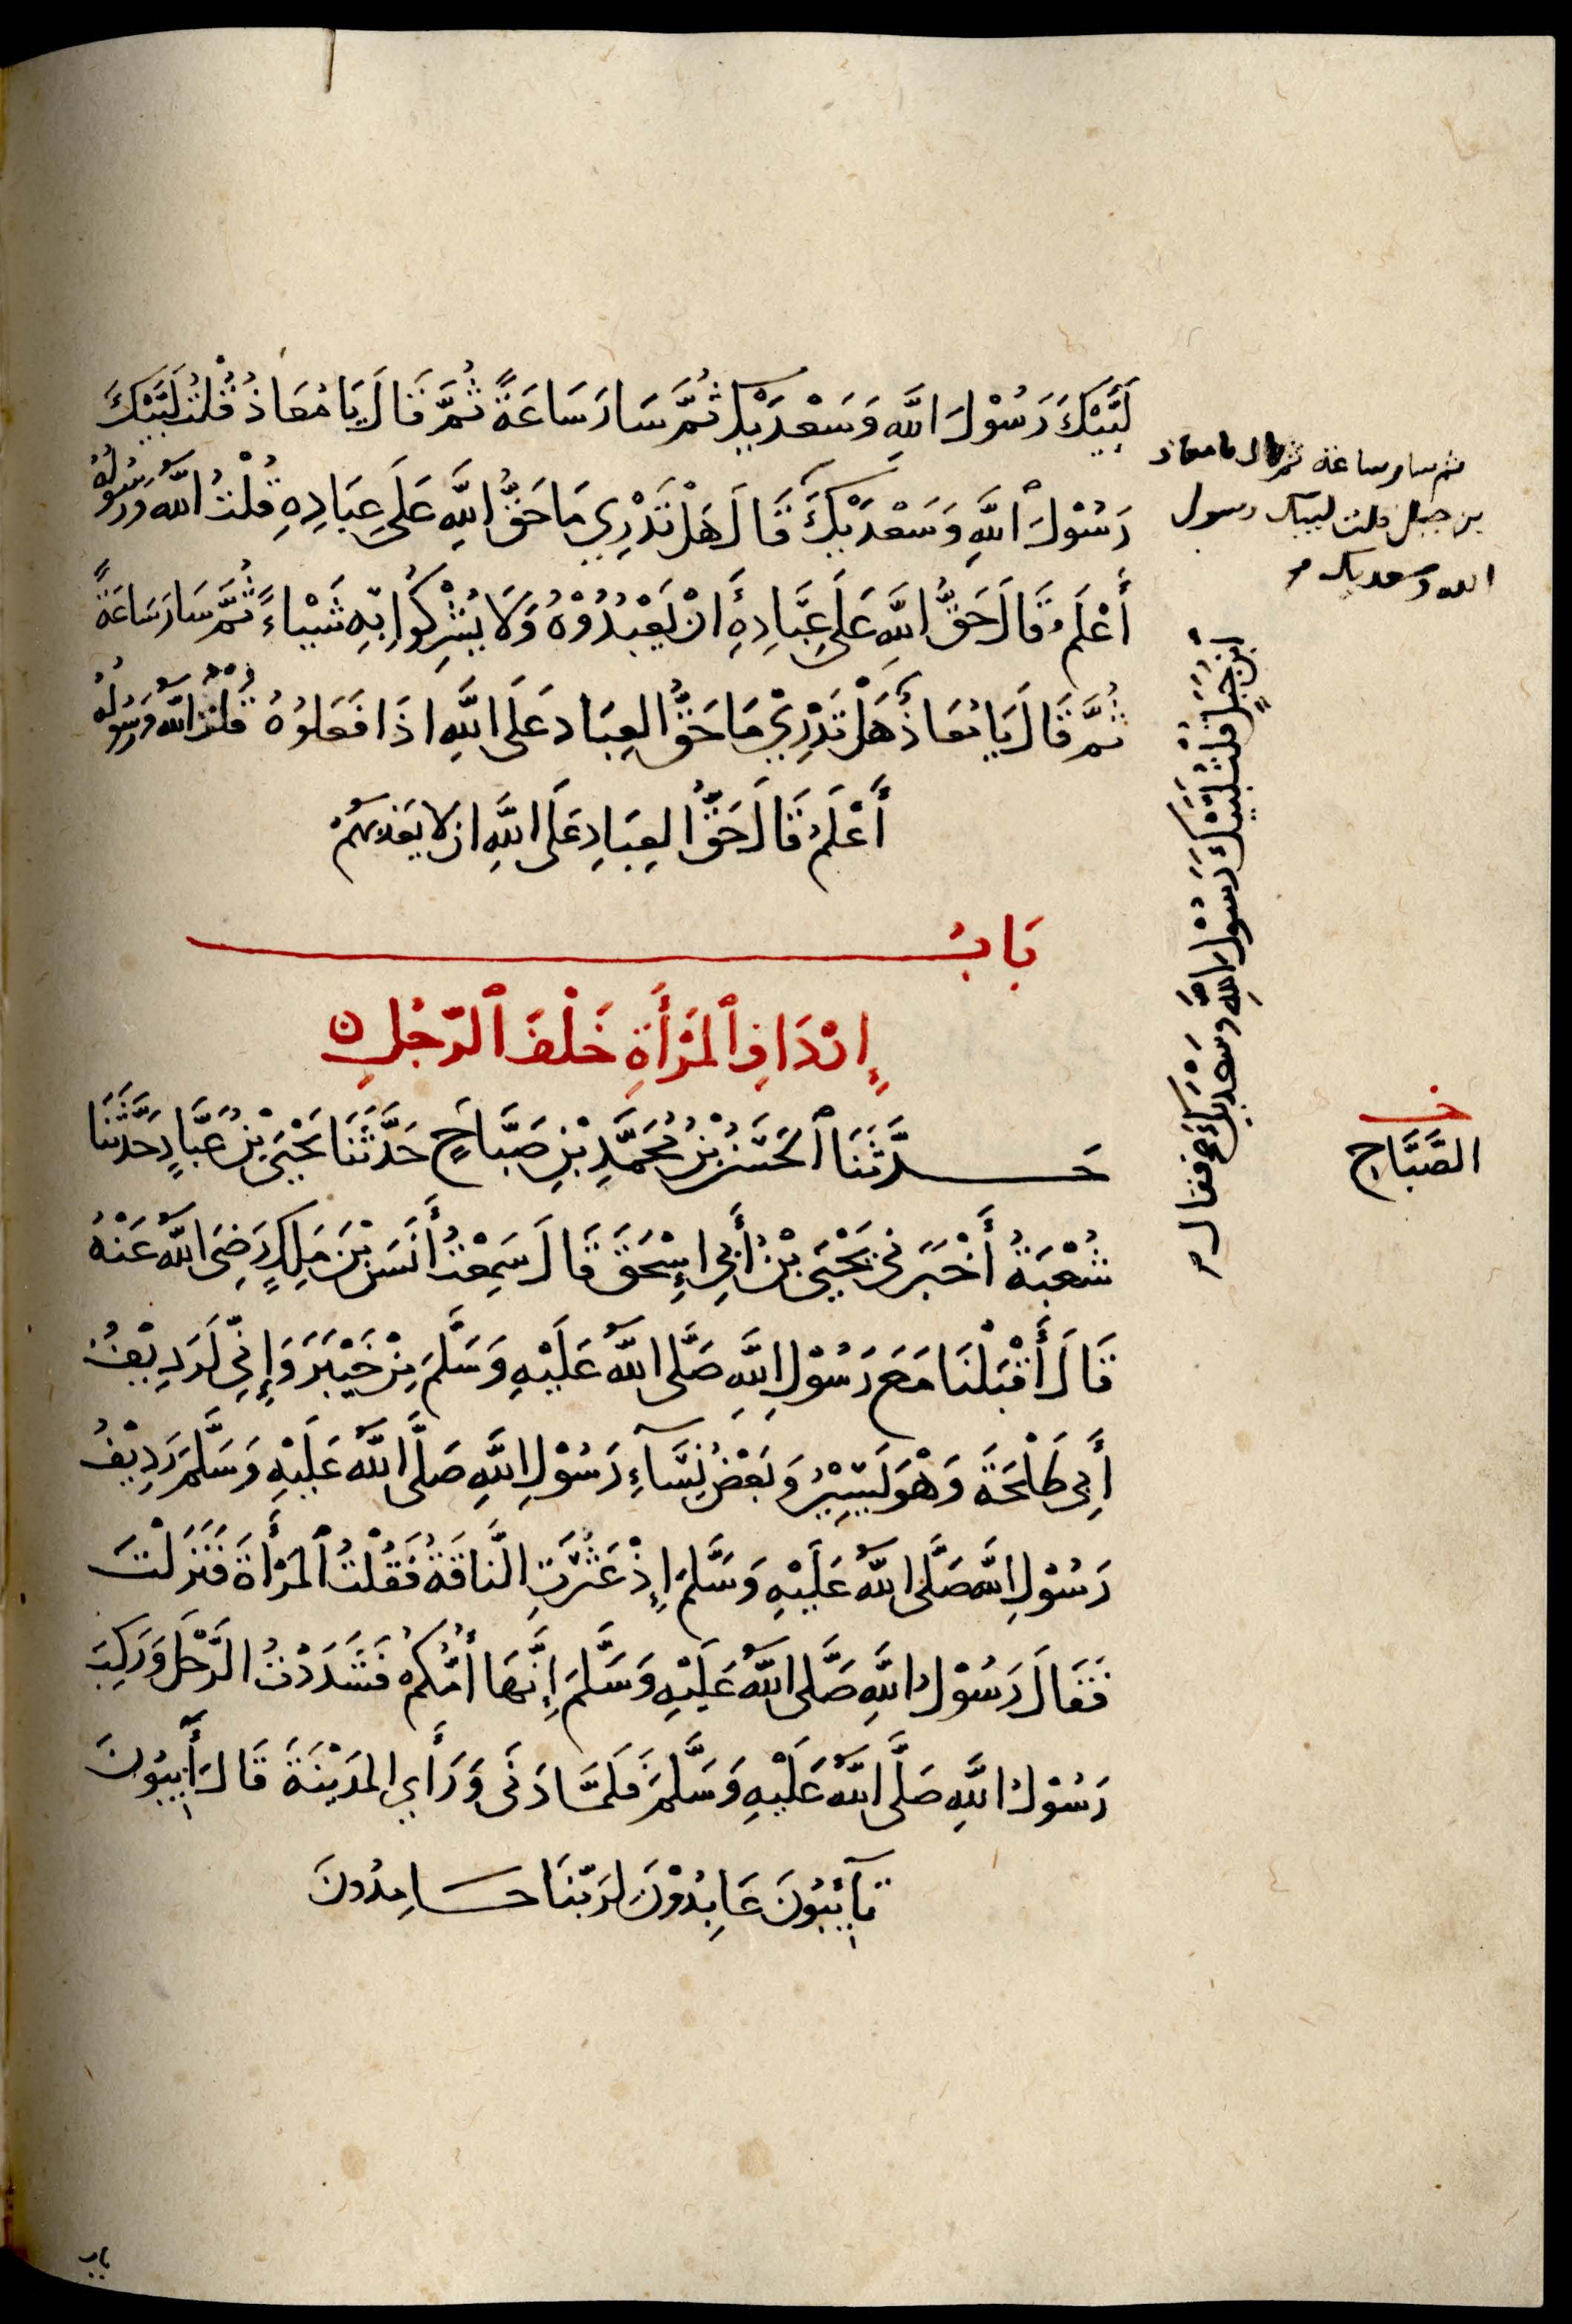 لَبَّيْكَ رَسُوْلَ اللَّهِ وَسَعْدَيْكَ ثُمَّ سَارَ سَاعَةً ثُمَّ قَالَ يَا مُعَاذُ قُلْتُ لَبَّيْكَ
رَسُوْلَ اللَّهِ وَسَعْدَيْكَ قَالَ هَلْ تَدْرِي مَا حَقُّ اللَّهِ عَلَى عِبَادِهِ قُلْتُ اللَّهُ وَرَسُولُهُ
أَعْلَمُ قَالَ حَقُّ اللَّهِ عَلَى عِبَادِهِ أَنْ يَعْبُدُوْهُ وَلَا يُشْرِكُوا بِهِ شَيْاءً ثُمَّ سَارَ سَاعَةً
ثُمَّ قَالَ يَا مُعَاذُ هَلْ تَدْرِيْ مَا حَقُّ العِبَادِ عَلَى اللَّهِ اذَا فَعَلُوْهُ قُلْتُ اللَّهُ وَرَسُولُهُ
أَعْلَمُ قَالَ حَقُّ العِبَادِ عَلَى اللَّهِ ان لا يعذبهُمْ
ثم سار ساعة ثم قال يا معاذ
بن جبل قلت لبيك رسول
الله وسعديك
ابْنَ جَبَلٍ قُلْتُ لَبَّيْكَ رَسُوْلَ اللَّهِ وَسَعْدَيْكَ فقال
بَابُ
إِرْدَافِ ٱلمَرْأَةِ خَلْفَ ٱلرَّجُلِ
حَدَّثَنَا ٱلحَسَنُ بْنُ مُحَمَّدِ بْنِ صَبَّاحٍ حَدَّثَنَا يَحْيَى بْنُ عَبَّادٍ حَدَّثَنَا
خـ
الصَّبَّاحِ
شُعْبَةُ أَخْبَرَنِي يَحْيَى بْنُ أَبِي إِسْحَقَ قَالَ سَمِعْتُ أَنَسَ بْنَ مَلِكٍ رَضِيَ اللَّهُ عَنْهُ
قَالَ أَقْبَلْنَا مَعَ رَسُوْلِ اللَّهِ صَلَّى اللَّهُ عَلَيْهِ وَسَلَّمَ مِنْ خَيْبَرَ وَإِنِّي لَرَدِيْفُ
أَبِي طَلْحَةَ وَهْوَ يَسِيْرُ وَبَعْضُ نِسَآءِ رَسُوْلِ اللَّهِ صَلَّى اللَّهُ عَلَيْهِ وَسَلَّمَ رَدِيْفُ
رَسُوْلِ اللَّهِ صَلَّى اللَّهُ عَلَيْهِ وَسَلَّمَ إِذْ عَثَرَتِ النَّاقَةُ فَقُلْتُ ٱلمَرْأَةَ فَنَزَلْتُ
فَقَالَ رَسُوْلُ اللَّهِ صَلَّى اللَّهُ عَلَيْهِ وَسَلَّمَ إِنَّهَا أُمُّكُمْ فَشَدَدْتُ الرَّحْلَ وَرَكِبَ
رَسُوْلُ اللَّهِ صَلَّى اللَّهُ عَلَيْهِ وَسَلَّمَ فَلَمَّا دَنَى وَرَأَي المَدِيْنَةَ قَالَ أَيِبُوْنَ
تَآيِبُوْنَ عَابِدُوْنَ لِرَبِّنَا حَامِدُونَ
باب